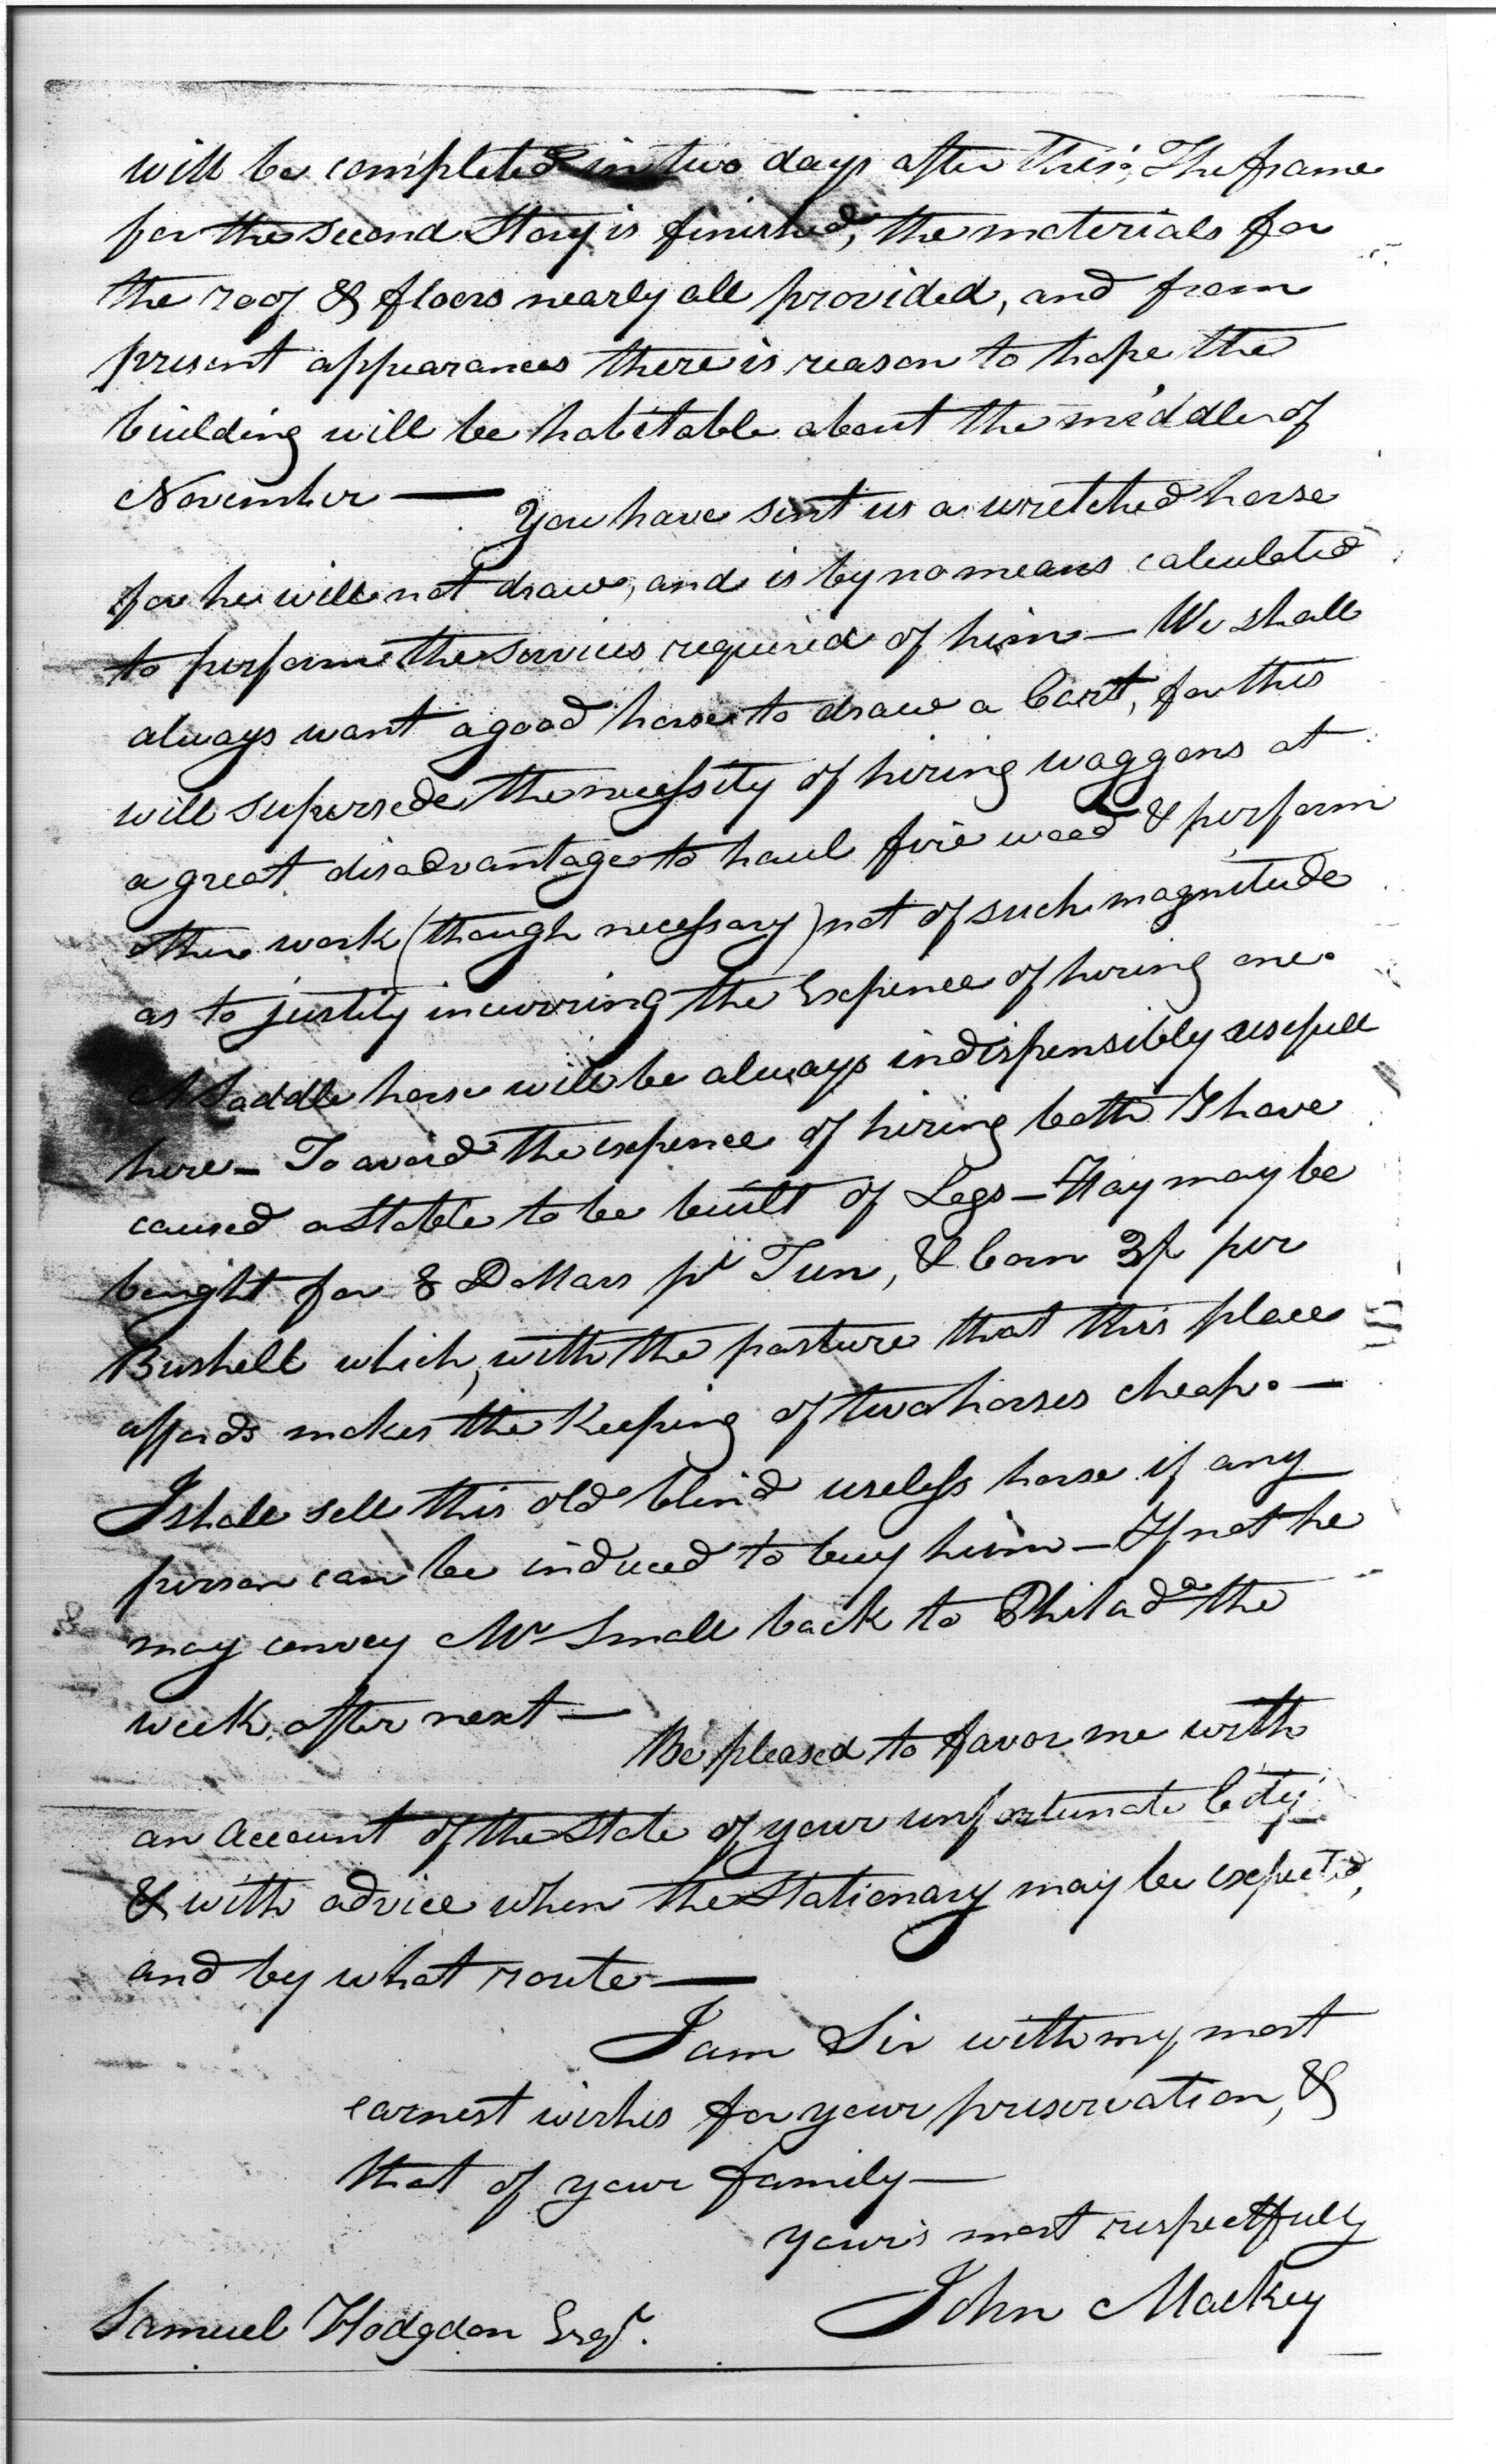 will be completed in two days after this; The frame
for the second Story is finished, the materials for
the roof & floors nearly all provided, and from
present appearances there is reason to hope the
building will be habitable about the middle of
November — You have sent us a wretched horse
for he will not draw, and is by no means calculated
to perform the services required of him — We shall
always want a good horse to draw a Cart, for this
will supersede the necessity of hiring waggons at
a great disadvantage to haul fire wood & perform
other work (though necessary) not of such magnitude
as to justify incurring the Expence of hiring one.
A Saddle horse will be always indispensibly usefull
here — To avoid the expence of hiring both I have
caused a Stable to be built of Logs — Hay may be
bought for 8 Dollars pr Tun, & Corn 3/ per
Bushell which, with the pasture that this place
affords makes the Keeping of two horses cheap. —
I shall sell this old blind useless horse if any
person can be induced to buy him — If not he
may convey Mr Small back to Philada the
week after next —
Be pleased to favor me with
an Account of the State of your unfortunate City
& with advice when the Stationary may be expected,
and by what route —
I am Sir with my most
earnest wishes for your preservation, &
that of your family —
Your's most respectfully
John Mackey
Samuel Hodgdon Esqr.